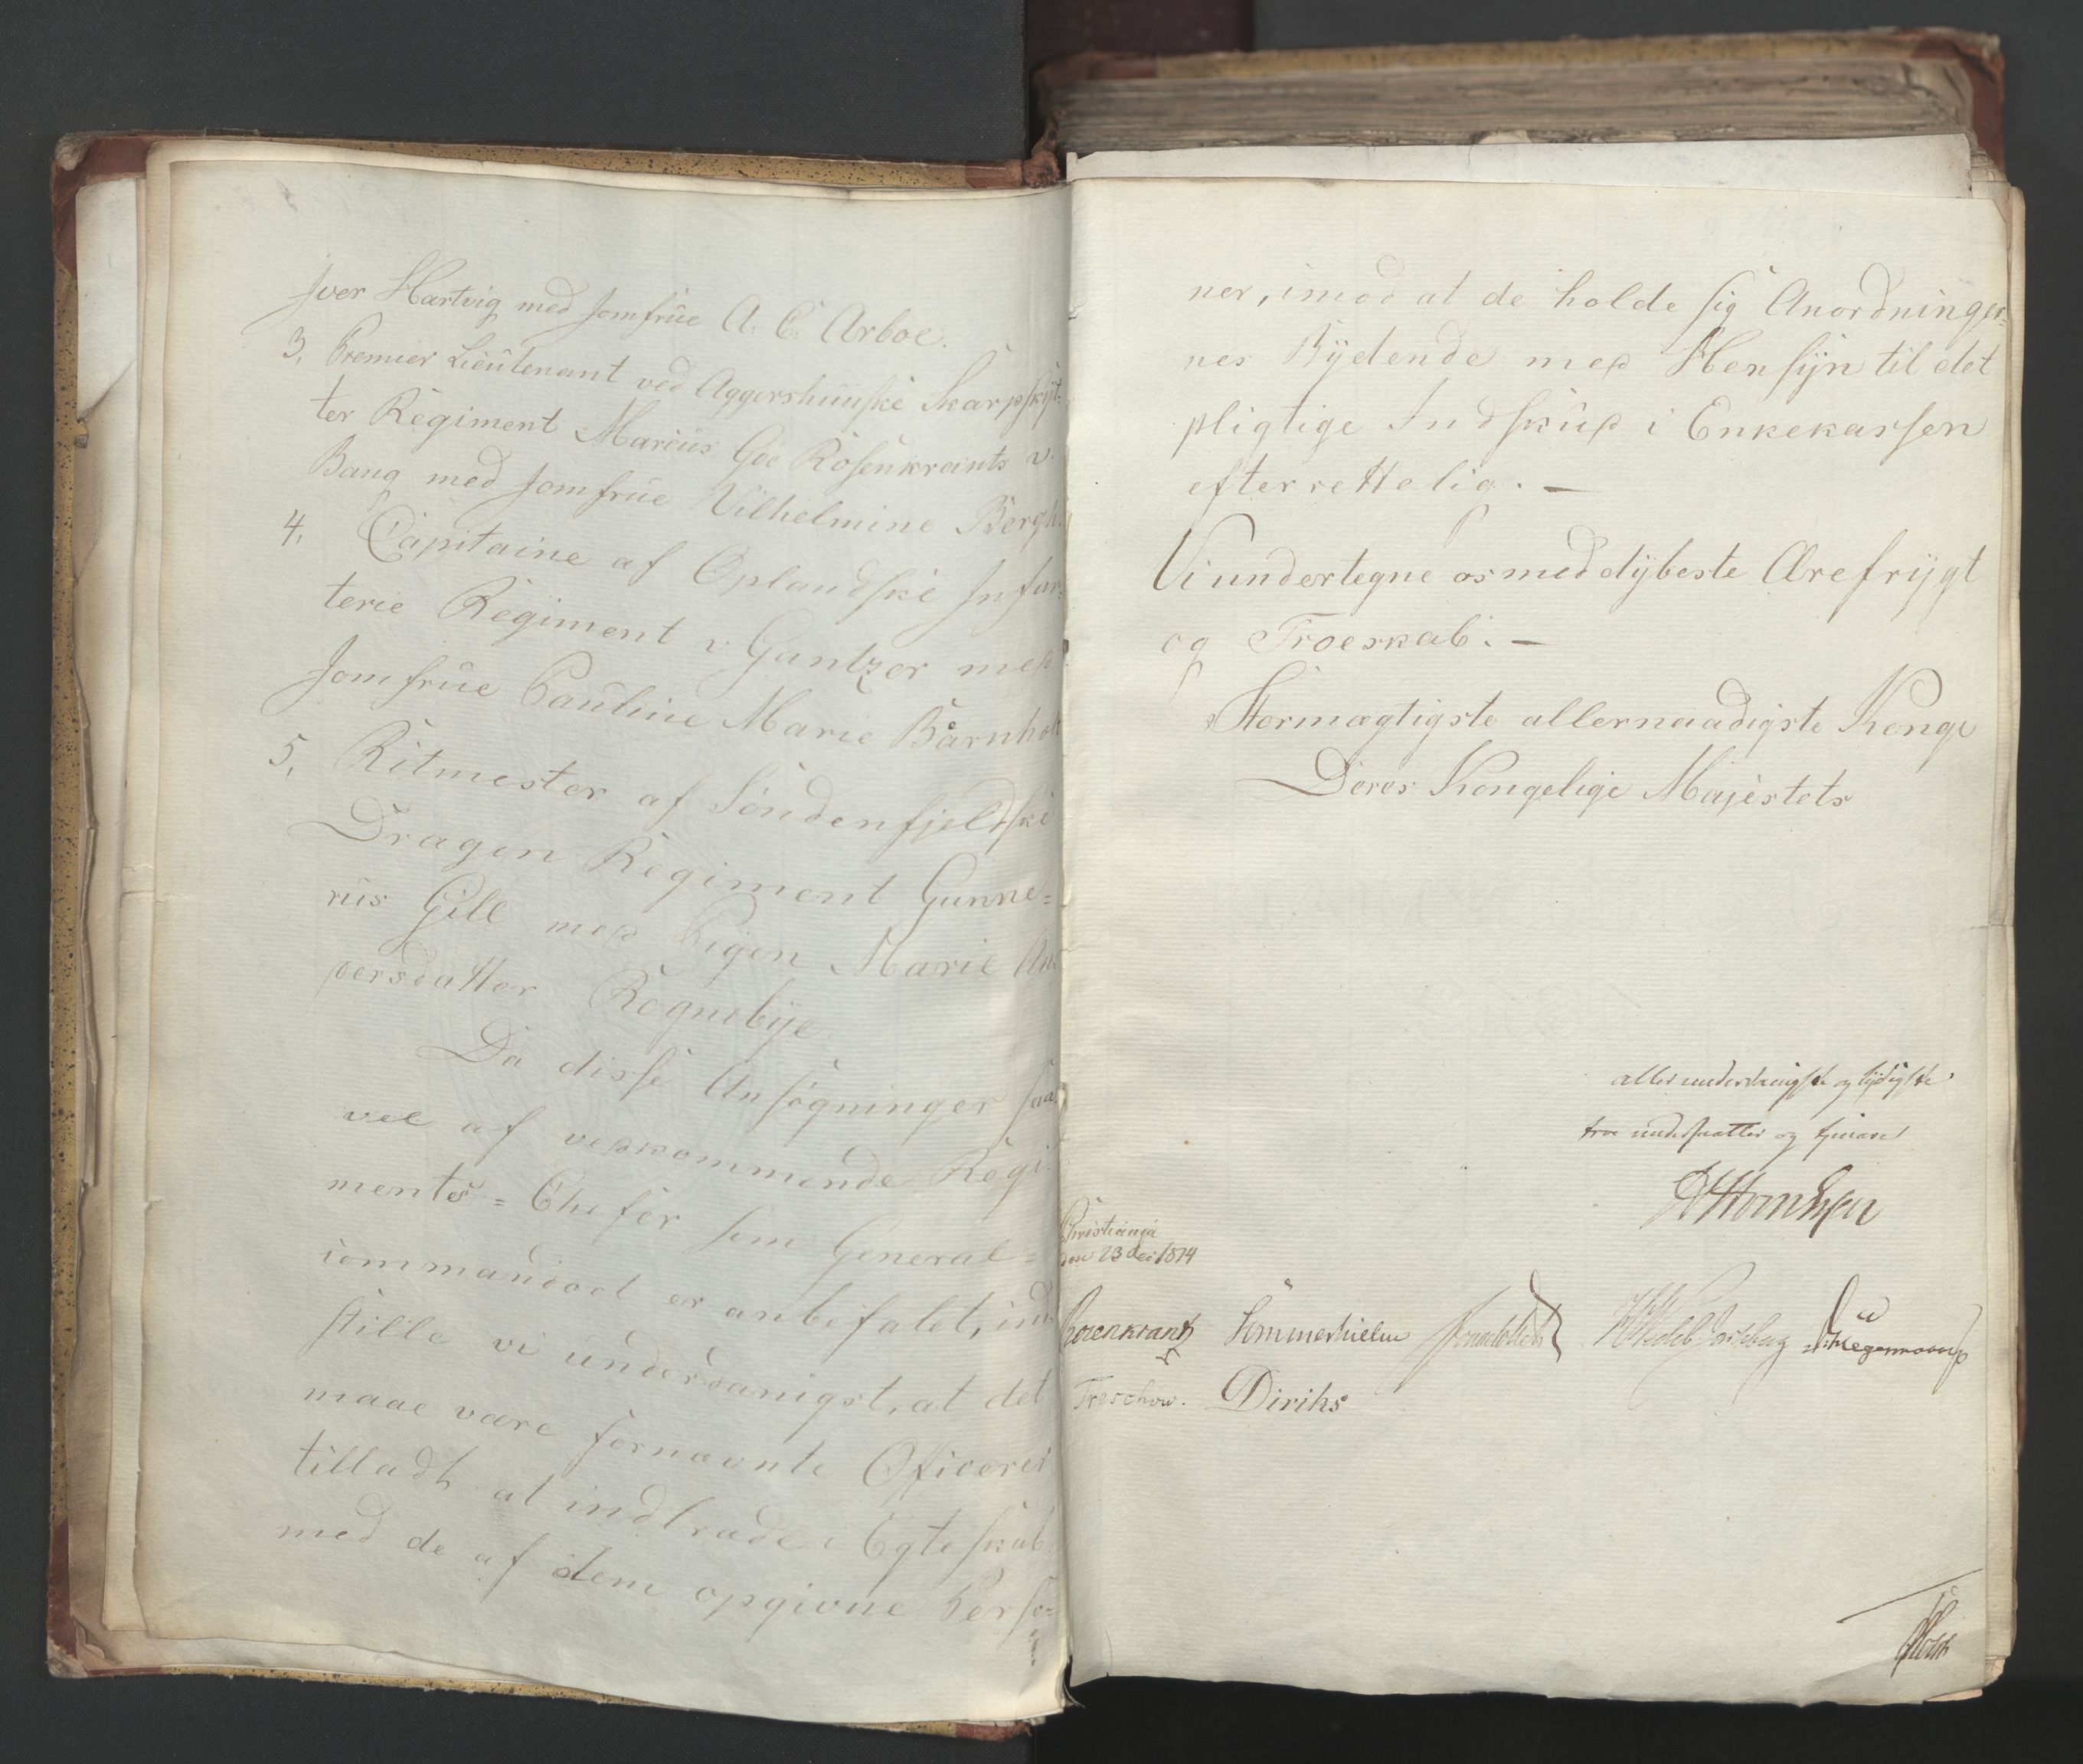 Iver Hartvig med Jomfrue A. C. Arboe.
3, Premier Lieutenant ved Aggershuuske Skarpskyt-
ter Regiment Marcus Gøe Rosenkrants v.
Bang med Jomfrue Vilhelmine Bergh.
4, Capitaine af Oplandske Infan-
terie Regiment v Gantzer med
Jomfrue Pauline Marie Barnholt
5, Ritmester af Søndenfjeldske
Dragon Regiment Gunne=
rus Gill med Pigen Marie An-
dersdatter Rognebye.
Da disse Ansøgninger saa-
vel af vedkommende Regi-
ments=Chefer som General=
commandoet er anbefalet, ind-
stille vi underdanigst, at det
maae være fornævnte Officerer
tilladt at indtræde i Egteskab
med de af dem opgivne Perso=
ner, imod at de holde sig Anordninger=
nes Bydende med Hensyn til det
pligtige Indskud i Enkekassen
efterrettelig. —
Vi undertegne os med dybeste Ærefrygt
og Troeskab. —
Stormægtigste allernaadigste Konge
Deres Kongelige Majestets
allerunderdanigste og lydigste
troe undersaatter og tjenere
Christiania
den 23 Dec 1814
Rosenkrantz Sommerhielm HWedel Jarlsberg Kregenmoorup
Treschow. Diriks
Holst